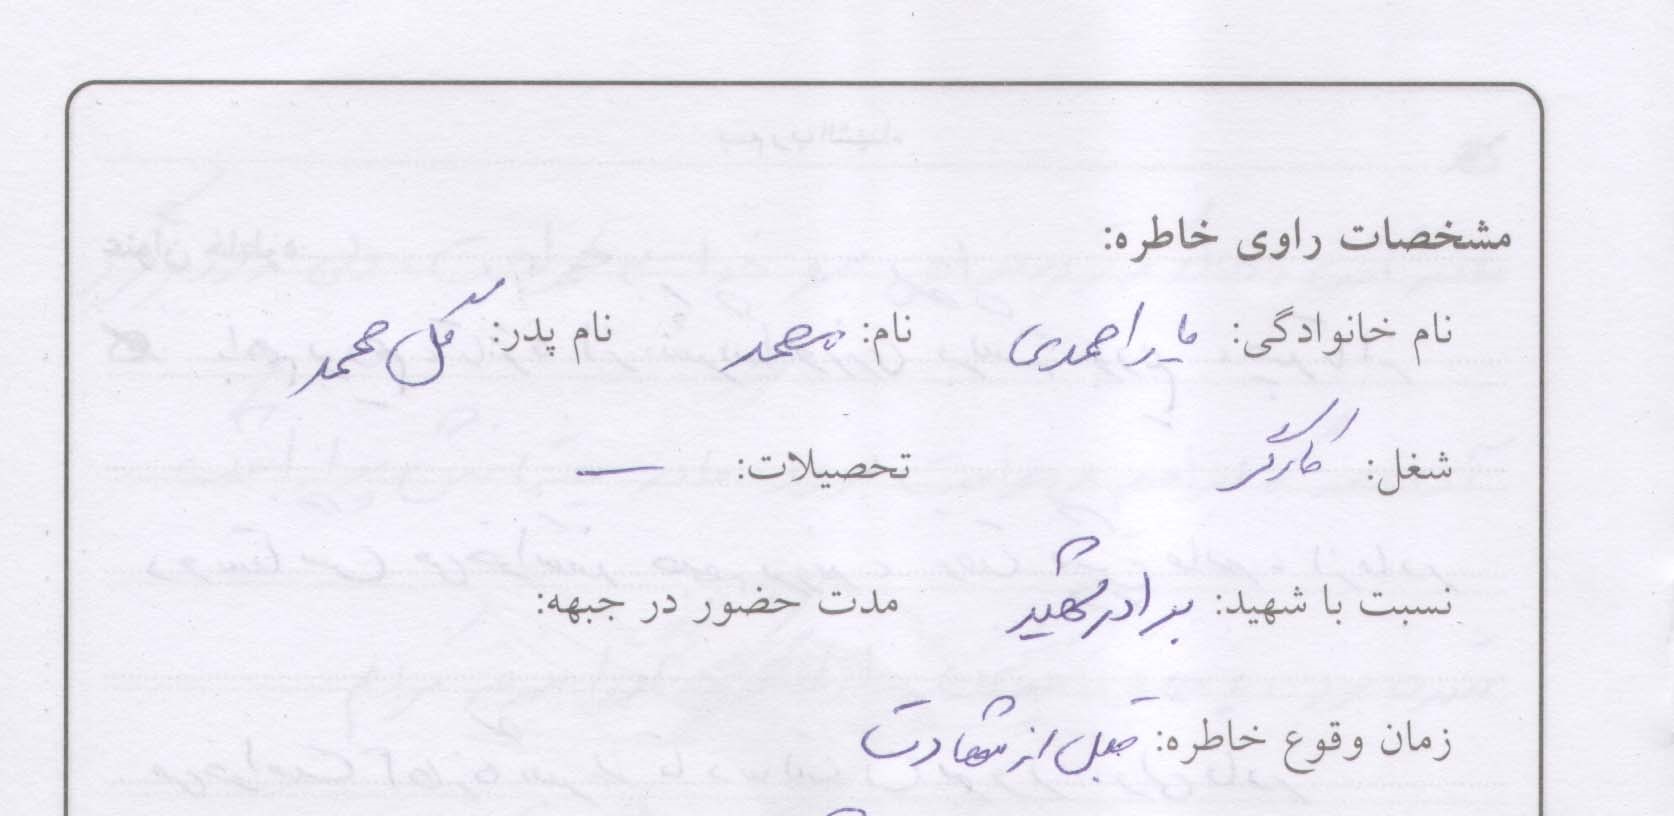 مشخصات راوی خاطره:
نام خانوادگی: یاراحمدی نام: محمد نام پدر: گل محمد
شغل: کارگر تحصیلات: —
نسبت با شهید: برادر شهید مدت حضور در جبهه:
زمان وقوع خاطره: قبل از شهادت